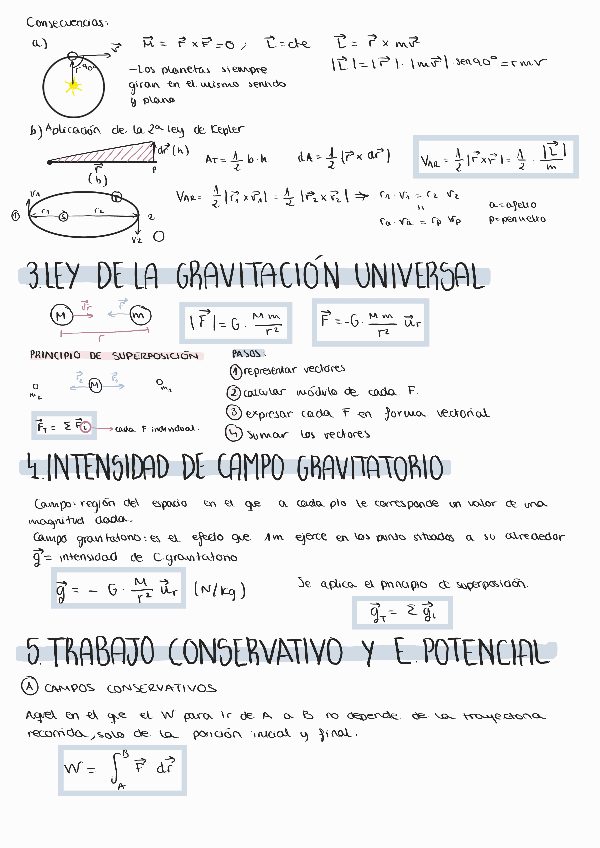 Consecuencias:
a.) M⃗ = r⃗ x F⃗ = 0 ; L⃗ = cte L⃗ = r⃗ x mv⃗
v⃗
r⃗ 90°
- Los planetas siempre
giran en el mismo sentido
y plano
|L⃗| = |r⃗| · |mv⃗| · sen 90° = r m v
b) Aplicación de la 2ª ley de Kepler
dr⃗ (h)
r⃗ P
(b)
A_T = 1/2 b · h dA = 1/2 (r⃗ x dr⃗) V_AR = 1/2 |r⃗ x v⃗| = 1/2 · |L⃗|/m
v1 1 r1 r2 2 v2
V_AR = 1/2 |r⃗1 x v⃗1| = 1/2 |r⃗2 x v⃗2| ⇒ r1 · v1 = r2 v2
"
ra · va = rp vp
a = afelio
p = perihelio
3. LEY DE LA GRAVITACIÓN UNIVERSAL
M u⃗r F⃗ m
r
|F⃗| = G · M m / r² F⃗ = -G · M m / r² u⃗r
PRINCIPIO DE SUPERPOSICIÓN
m2 F⃗2 M F⃗1 m1
F⃗T = Σ F⃗i → cada F individual.
PASOS:
1 representar vectores
2 calcular módulo de cada F.
3 expresar cada F en forma vectorial
4 sumar los vectores
4. INTENSIDAD DE CAMPO GRAVITATORIO
Campo: región del espacio en el que a cada pto le corresponde un valor de una
magnitud dada.
Campo gravitatorio: es el efecto que 1m ejerce en los punto situados a su alrededor
g⃗ = intensidad de C. gravitatorio
g⃗ = - G · M / r² u⃗r (N/kg)
Se aplica el principio de superposición.
g⃗T = Σ g⃗i
5. TRABAJO CONSERVATIVO Y E. POTENCIAL
A CAMPOS CONSERVATIVOS
Aquel en el que el W para ir de A a B no depende de la trayectoria
recorrida, solo de la posición inicial y final.
W = ∫_A^B F⃗ dr⃗